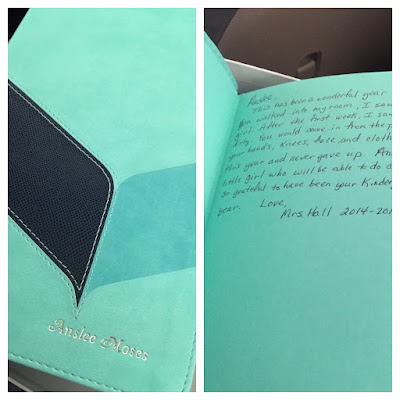 Anslee Moses
Anslee,
This has been a wonderful year
You walked into my room, I saw
girl. After the first week, I saw
dirty. You would come in from the p
your hands, knees, face, and cloth
this year and never gave up.
little girl who will be able to do
so grateful to have been your Kinder
year. Love,
Mrs. Hall 2014-201